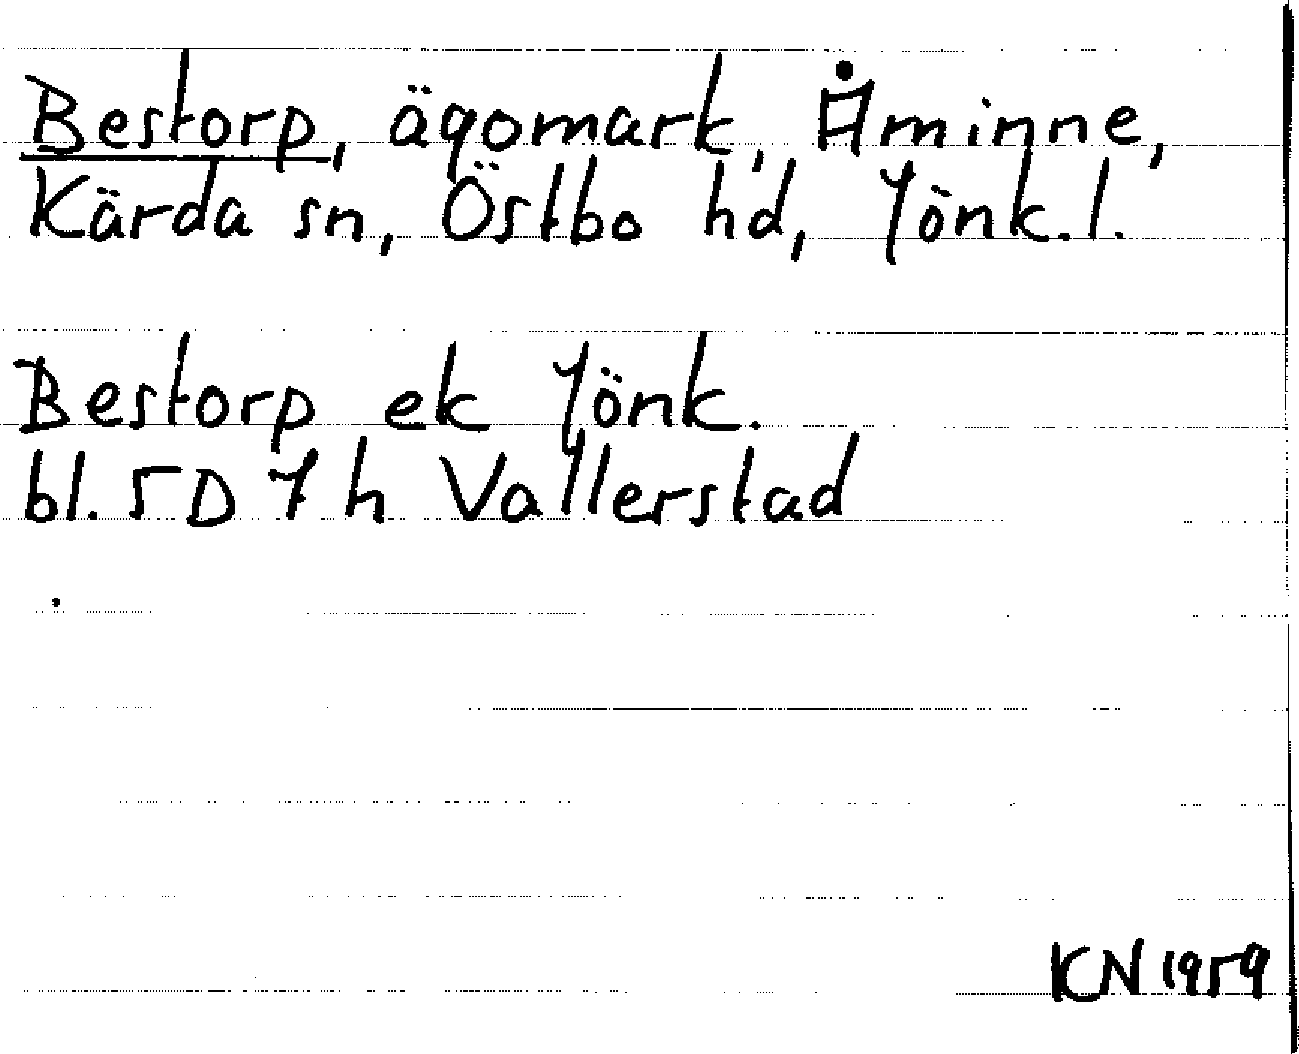 Bestorp, ägomark, Åminne,
Kärda sn, Östbo hd, Jönk. l.
Bestorp ek Jönk.
bl. 5D 7 h Vallerstad
KN 1959